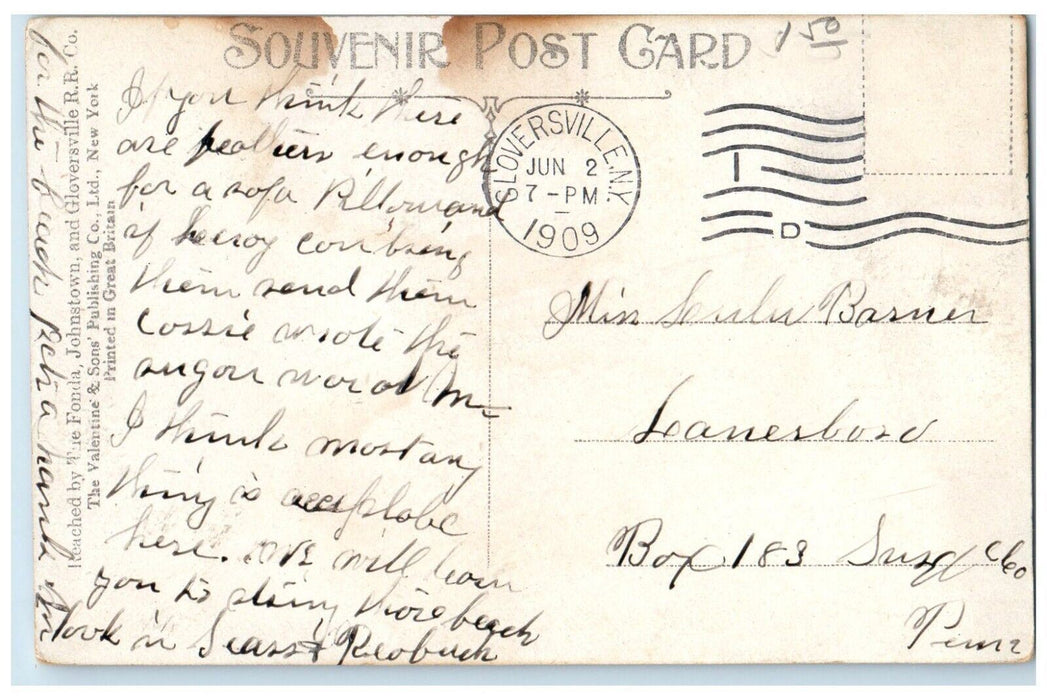 SOUVENIR POST CARD
150
If you think there
are feathers enough
for a sofa Pillow and
if Leeroy can bring
them send them
Cossie wrote the
sugar was all
I think most any
thing is
here. we will learn
you to string those beach
look in Sears & Reobuck
for the beach
Reached by The Fonda, Johnstown, and Gloversville R.R. Co.
The Valentine & Sons' Publishing Co., Ltd., New York
Printed in Great Britain
GLOVERSVILLE, N.Y.
JUN 2
7-PM
1909
I
D
Miss Lulu Barner
Lanesboro
Box 183 Susq Co
Penna